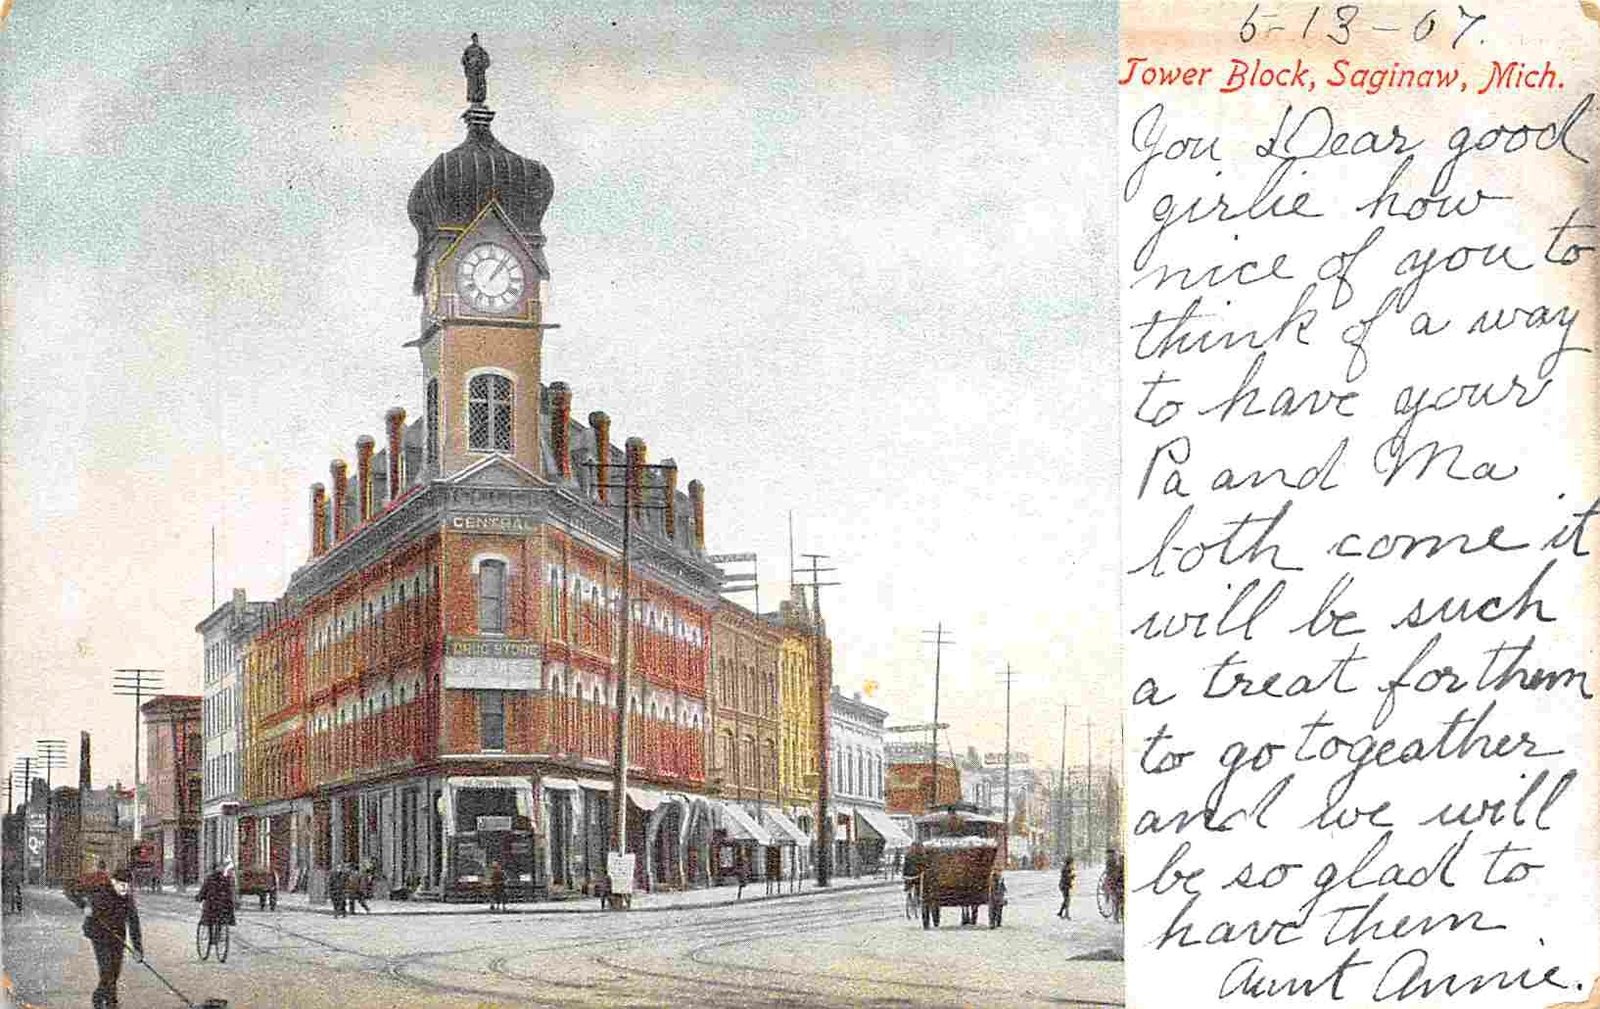 5-13-07.
Tower Block, Saginaw, Mich.
You Dear good
girlie how
nice of you to
think of a way
to have your
Pa and Ma
both come it
will be such
a treat for them
to go togeather
and we will
be so glad to
have them
Aunt Annie.
CENTRAL
DRUG STORE